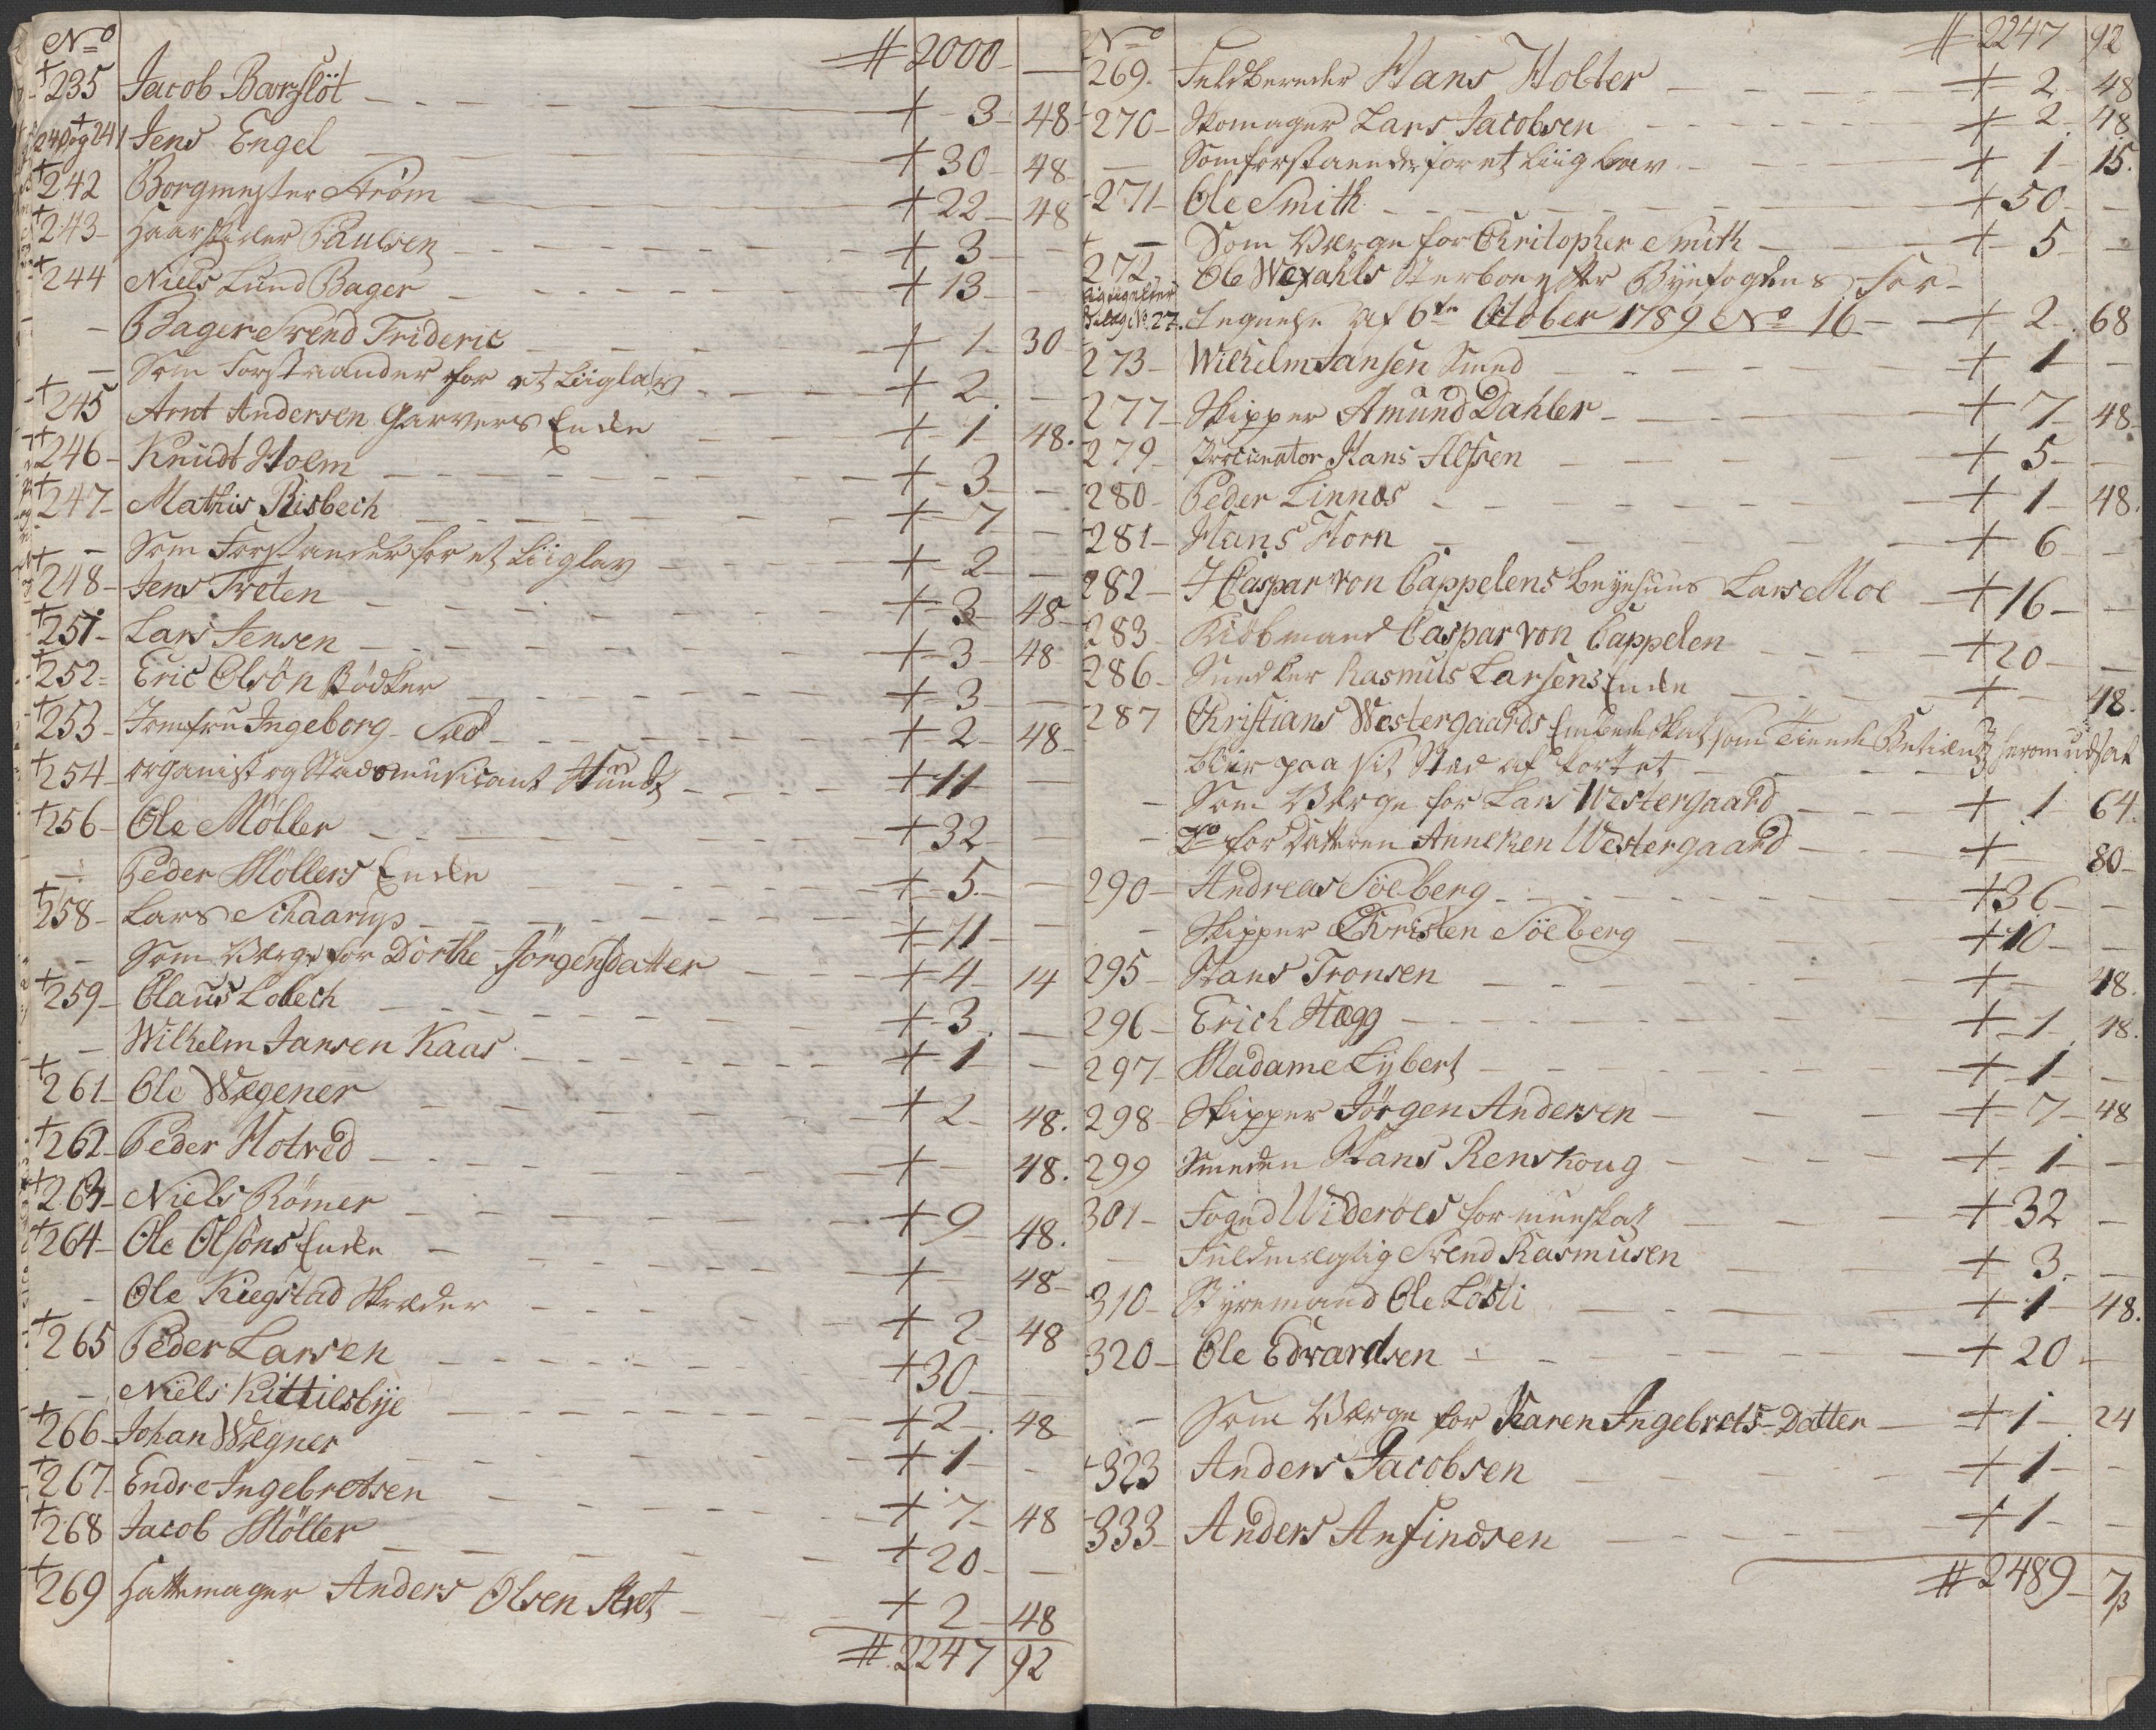 No # 2000 —
+235 Jacob Barslöt + 3 48
240 og +241 Jens Engel + 30 48
+242 Borgmester Ström + 22 48
+243 Haarskiærer Paulsen + 3 —
+244 Niels Lund Bager + 13 —
— Bager Svend Frideric + 1 30
— Som Forstaander for et Liiglav + 2 —
+245 Arnt Andersen Garvers Enke + 1 48
+246 Knudt Holm + 3 —
+247 Mathis Risbech + 7 —
— Som Forstander for et Liiglav + 2 —
+248 Jens Treten + 3 48
+251 Lars Jensen + 3 48
+252 Eric Olsön Bödker + 3 —
+253 Jomfru Ingeborg + 2 48
+254 organist og Stadsmusicant Hundt + 11
+256 Ole Möller + 32 —
— Peder Möllers Enke + 5 —
+258 Lars Schaarup + 11 —
— Som Værge for Dorthe Jörgensdatter + 4 14
+259 Claus Lobech + 3 —
— Wilhelm Jansen Kaas + 1 —
+261 Ole Wægener + 2 48
+262 Peder Hotved + — 48
+263 Niels Römer + 9 48
+264 Ole Olsöns Enke + — 48
— Ole Kiegstad Skræder + 2 48
+265 Peder Larsen + 30 —
— Niels Kittilsbÿe + 2 48
+266 Johan Wægner + 1 —
+267 Endre Ingebretsen + 7 48
+268 Jacob Möller + 20 —
+269 Hattemager Anders Olsen + 2 48
# 2247 92
No # 2247 92
269 Feldbereder Hans Holter + 2 48
270 Skomager Lars Jacobsen + 2 48
— Som forstaander for et Liig lav + 1 15
271 Ole Smith + 50 —
— Som Værge for Chritopher Smith + 5 —
272 Ole Wexahls Sterboe efter Bÿefogdens For-
No 27. af 6te October 1789 No 16 + 2 68
273 Wilhelm Jansen Smed + 1 —
277 Skipper Amund Dahler + 7 48
279 Procurator Hans Alfsen + 5 —
280 Peder Linnæs + 1 48
281 Hans Horn + 6 —
282 H Caspar von Cappelens Lars Moe + 16 —
283 Kiöbmand Caspar von Cappelen + 20 —
286 Rasmus Larsens Enke + — 48
287 Christians Westergaards som
blir paa sit Sted af fortet
— Som Værge for Lars Westergaard + 1 64
— Do for Datteren Anneken Westergaard + — 80
290 Andreas Söeberg + 36 —
— Skipper Christen Söeberg + 10 —
295 Hans Tronsen + — 48
296 Erich Hægg + 1 48
297 Madame Lÿbert + 1 —
298 Skipper Jörgen Andersen + 7 48
299 Smeden Hans Renskoug + 1 —
301 Foged Wideröes formueskat + 32 —
— Fuldmægtig Svend Rasmusen + 3 —
310 Styremand Ole Lösti + 1 48
320 Ole Edvardsen + 20 —
— Som Værge for Karen Ingebrets-Datter + 1 24
323 Anders Jacobsen + 1 —
333 Anders Anfindsen + 1 —
# 2489 7β